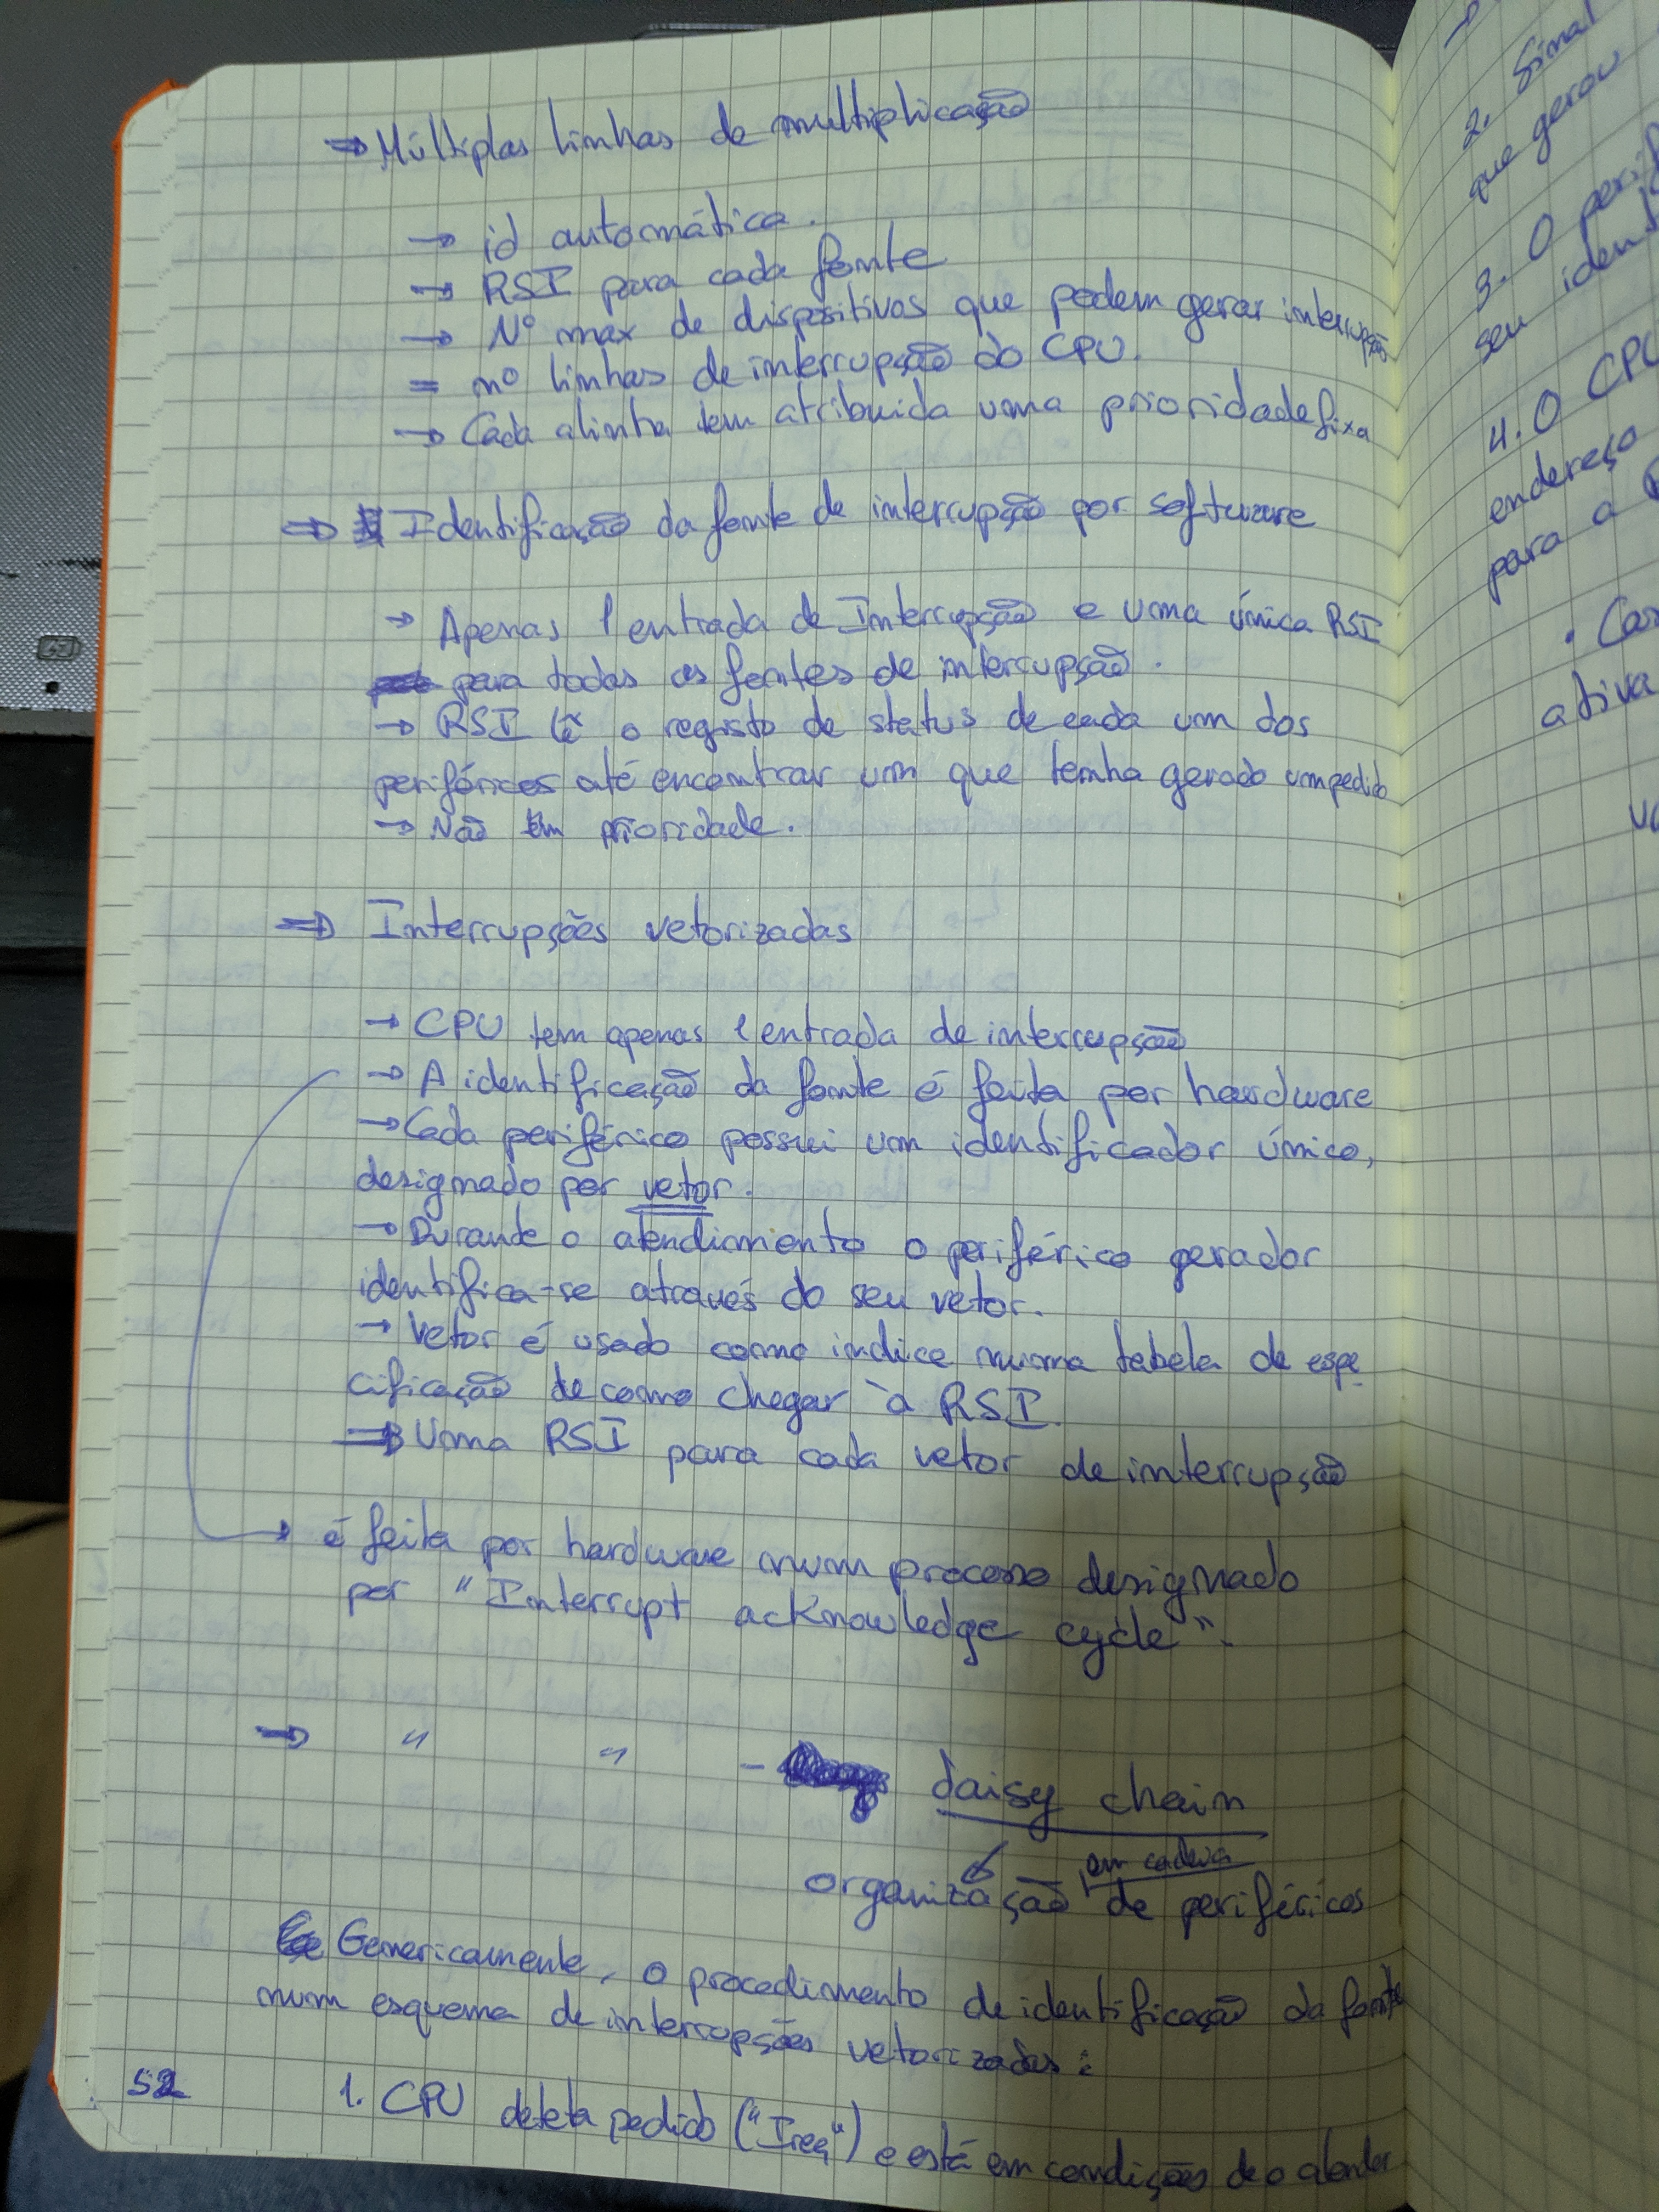 ⇒ Múltiplas linhas de multiplicação
→ id automática.
→ RSI para cada fonte
→ Nº max de dispositivos que podem gerar interrupção
= nº linhas de interrupção do CPU.
→ Cada alinha tem atribuida uma prioridade fixa
⇒ Identificação da fonte de interrupção por software
→ Apenas 1 entrada de Interrupção e uma única RSI
para todas as fontes de interrupção.
→ RSI lê o registo de status de cada um dos
periféricos até encontrar um que tenha gerado um pedido
→ Não tem prioridade.
⇒ Interrupções vetorizadas
→ CPU tem apenas 1 entrada de interrupção
→ A identificação da fonte é feita por hardware
→ Cada periférico possui um identificador único,
designado por vetor.
→ Durante o atendimento o periférico gerador
identifica-se através do seu vetor.
→ Vetor é usado como indice numa tabela de espe
cificação de como chegar à RSI.
⇒ Uma RSI para cada vetor de interrupção
→ é feita por hardware num processo designado
por "Interrupt acknowledge cycle".
⇒ " " - daisy chain
em cadeia
organização de periféricos
Genericamente, o procedimento de identificação da fonte
num esquema de interrupções vetorizadas:
1. CPU deteta pedido ("Ireq") e está em condições de o atender
52
2. Sinal
que gerou
3. O perif
seu ident
4. O CPU
endereço
para a
ativa